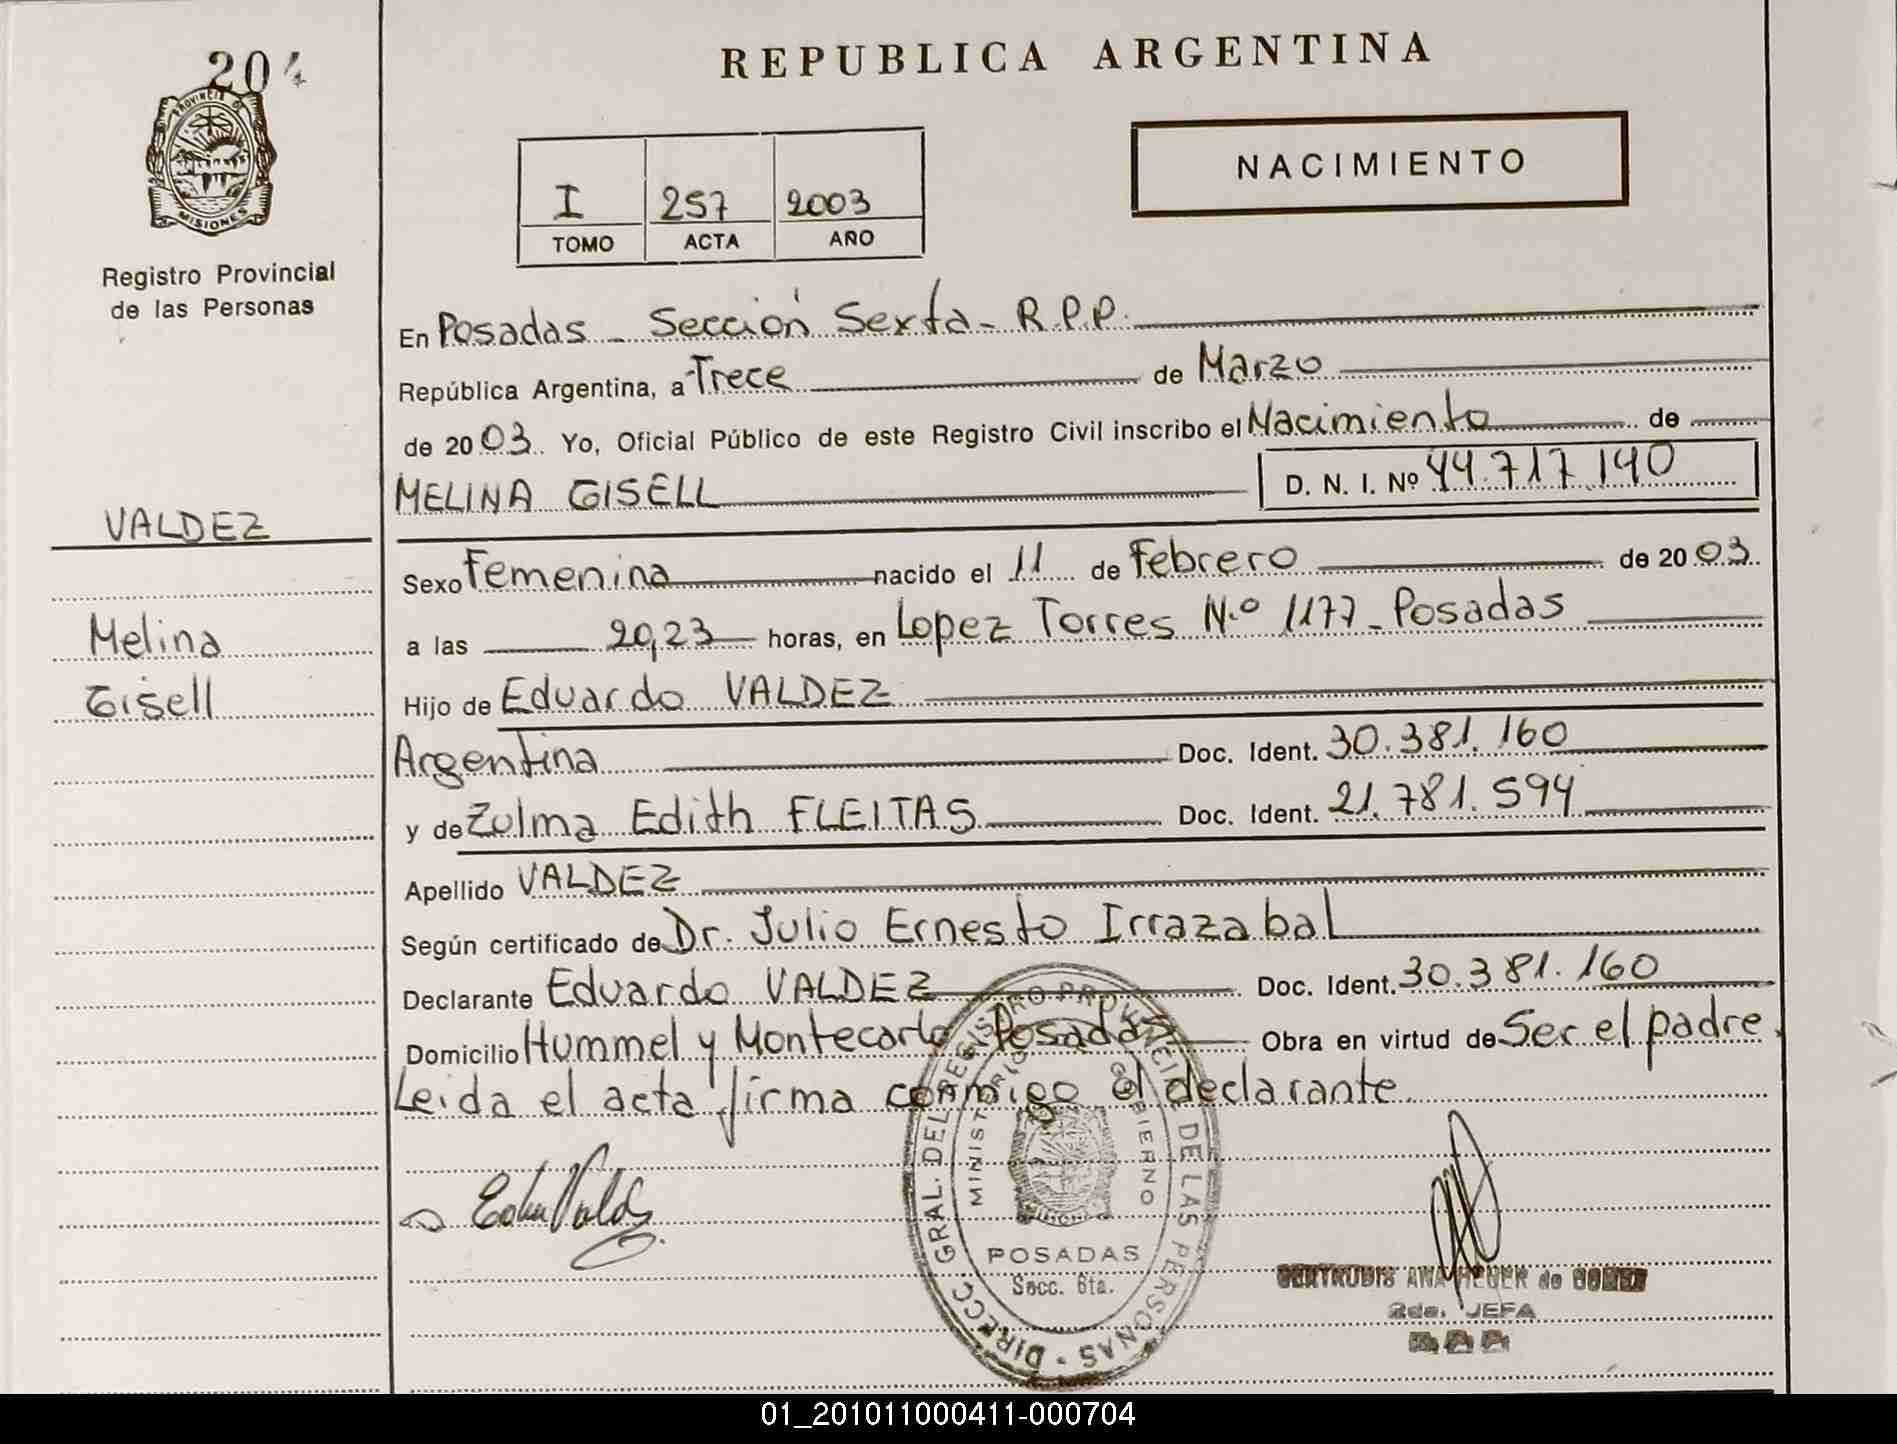 204
PROVINCIA DE
MISIONES
Registro Provincial
de las Personas
REPUBLICA ARGENTINA
NACIMIENTO
I 257 2003
TOMO ACTA AÑO
En Posadas - Sección Sexta - R.P.P.
República Argentina, a Trece de Marzo
de 2003. Yo, Oficial Público de este Registro Civil inscribo el Nacimiento de
MELINA GISELL D. N. I. Nº 44.717.140
VALDEZ
Melina
Gisell
Sexo Femenina nacido el 11 de Febrero de 2003.
a las 20,23 horas, en Lopez Torres N.º 1177 - Posadas
Hijo de Eduardo VALDEZ
Argentina Doc. Ident. 30.381.160
y de Zulma Edith FLEITAS Doc. Ident. 21.781.594
Apellido VALDEZ
Según certificado de Dr. Julio Ernesto Irrazabal
Declarante Eduardo VALDEZ Doc. Ident. 30.381.160
Domicilio Hummel y Montecarlo Posadas Obra en virtud de Ser el padre.
Leida el acta firma conmigo el declarante
DIRECC. GRAL. DEL REGISTRO PROVINCIAL DE LAS PERSONAS
MINISTERIO GOBIERNO
POSADAS
Secc. 6ta.
GERTRUDIS ANA HEUER de GOMEZ
2da. JEFA
01_201011000411-000704